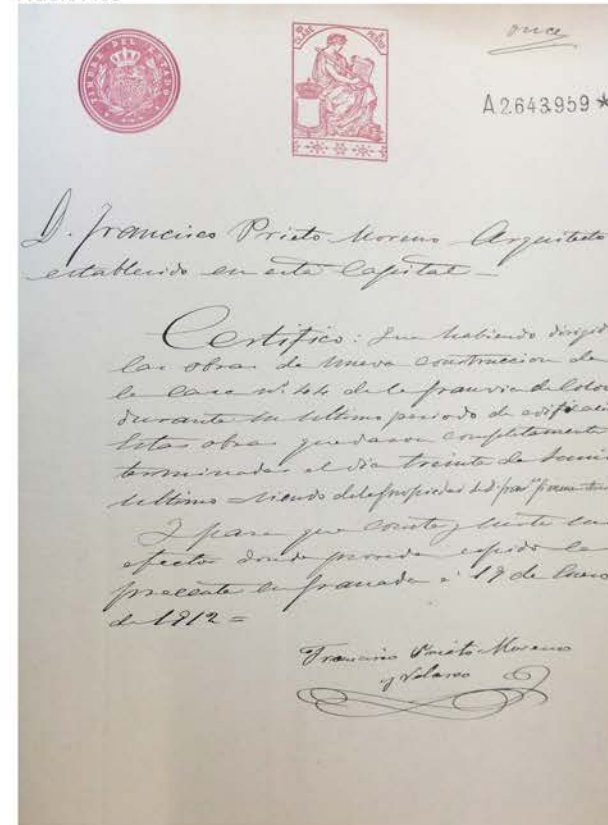 TIMBRE DEL ESTADO
once
A.2.643.959 *
D. Francisco Prieto Moreno Arquitecto
establecido en esta Capital =
Certifico: Que habiendo dirigid
las obras de nueva construccion de
la Casa nº 44 de la Granvia de Colon
durante su ultimo periodo de edificaci
Estas obras quedaron completamente
terminadas el dia treinta de Junio
ultimo = siendo de la propiedad de
Y para que conste y surta sus
efectos donde proceda expido la
presente en Granada á 19 de Enero
de 1912 =
Francisco Prieto Moreno
y Velasco